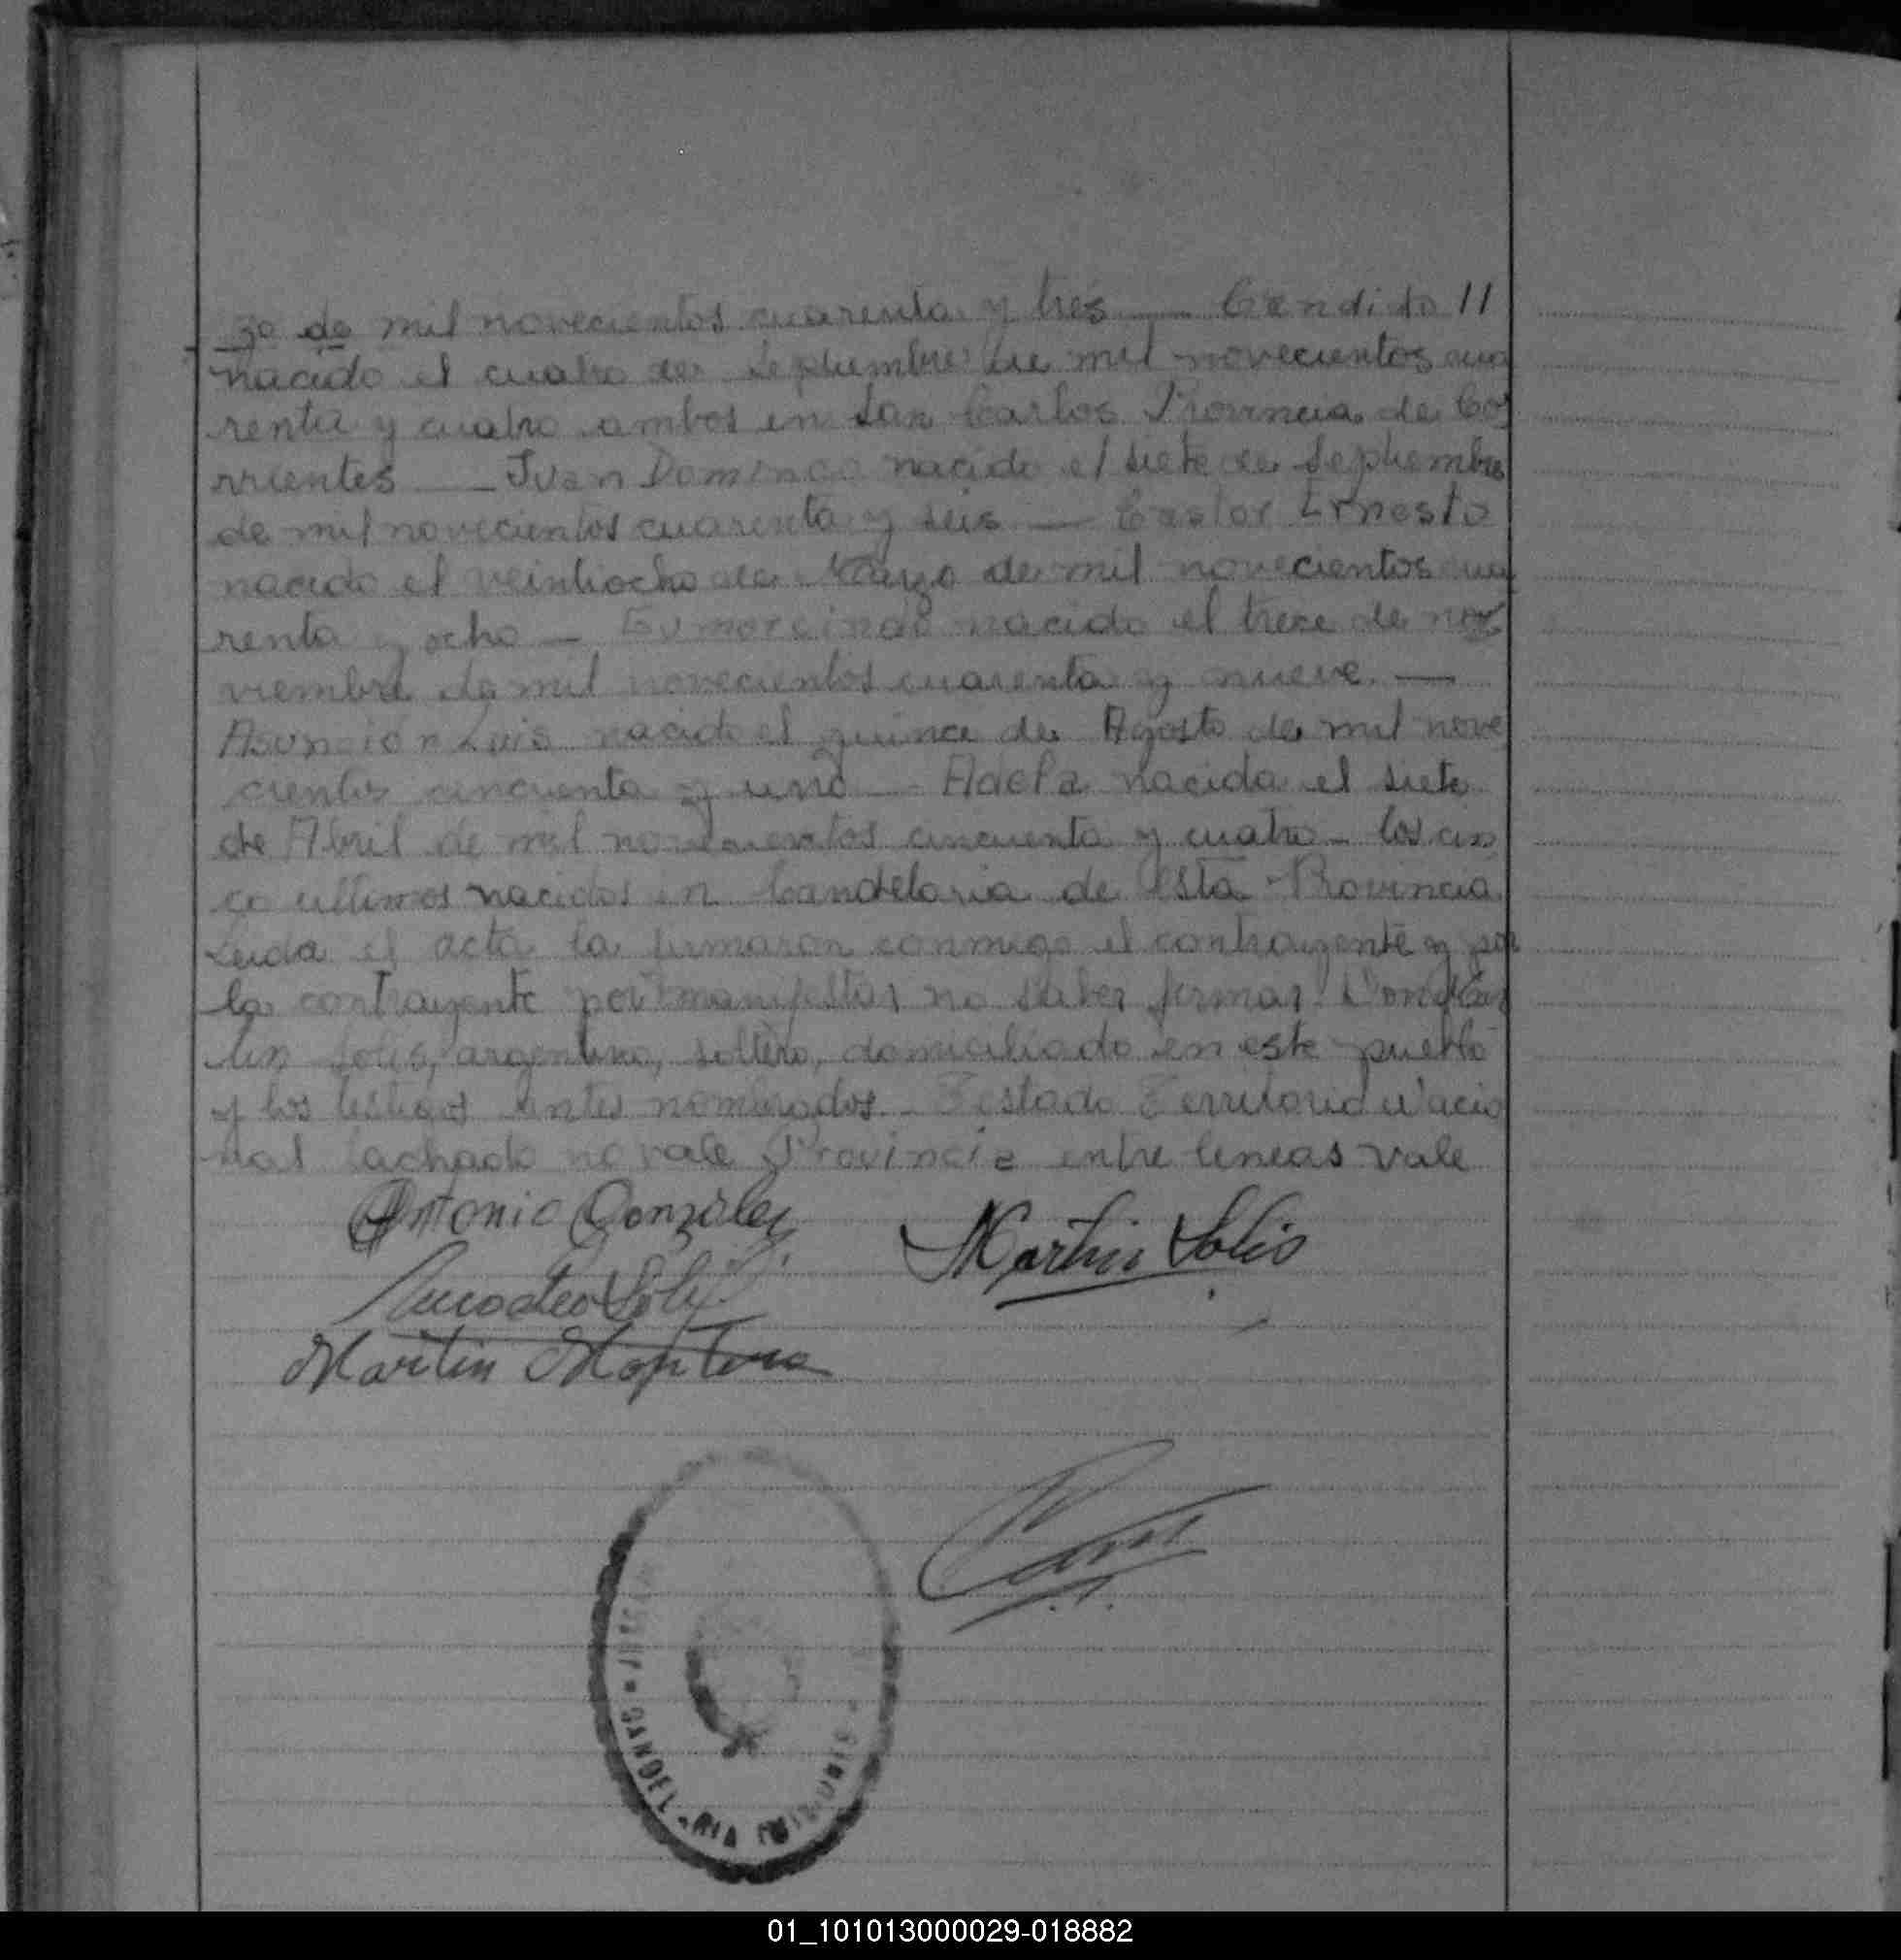 zo de mil novecientos cuarenta y tres — Candido //
nacido el cuatro de Septiembre de mil novecientos cua
renta y cuatro ambos en San Carlos Provincia de Co
rrientes — Juan Domingo nacido el siete de Septiembre
de mil novecientos cuarenta y seis — Castor Ernesto
nacido el veintiocho de Mayo de mil novecientos cua
renta y ocho — Gumercindo nacido el trece de no
viembre de mil novecientos cuarenta y nueve —
Asunción Luis nacido el quince de Agosto de mil nove
cientos cincuenta y uno — Adela nacida el siete
de Abril de mil novecientos cincuenta y cuatro - los cin
co ultimos nacidos en Candelaria de esta Provincia
Leida el acta la firmaron conmigo el contrayente y por
la contrayente por manifestar no saber firmar Don Mar
tin Solis, argentino, soltero, domiciliado en este pueblo
y los testigos antes nombrados - Testado Territorio Nacio
nal tachado no vale Provincia entre lineas vale
Antonio González
Martin Solis
Solis
Martin
CANDELARIA MISIONES
01_101013000029-018882